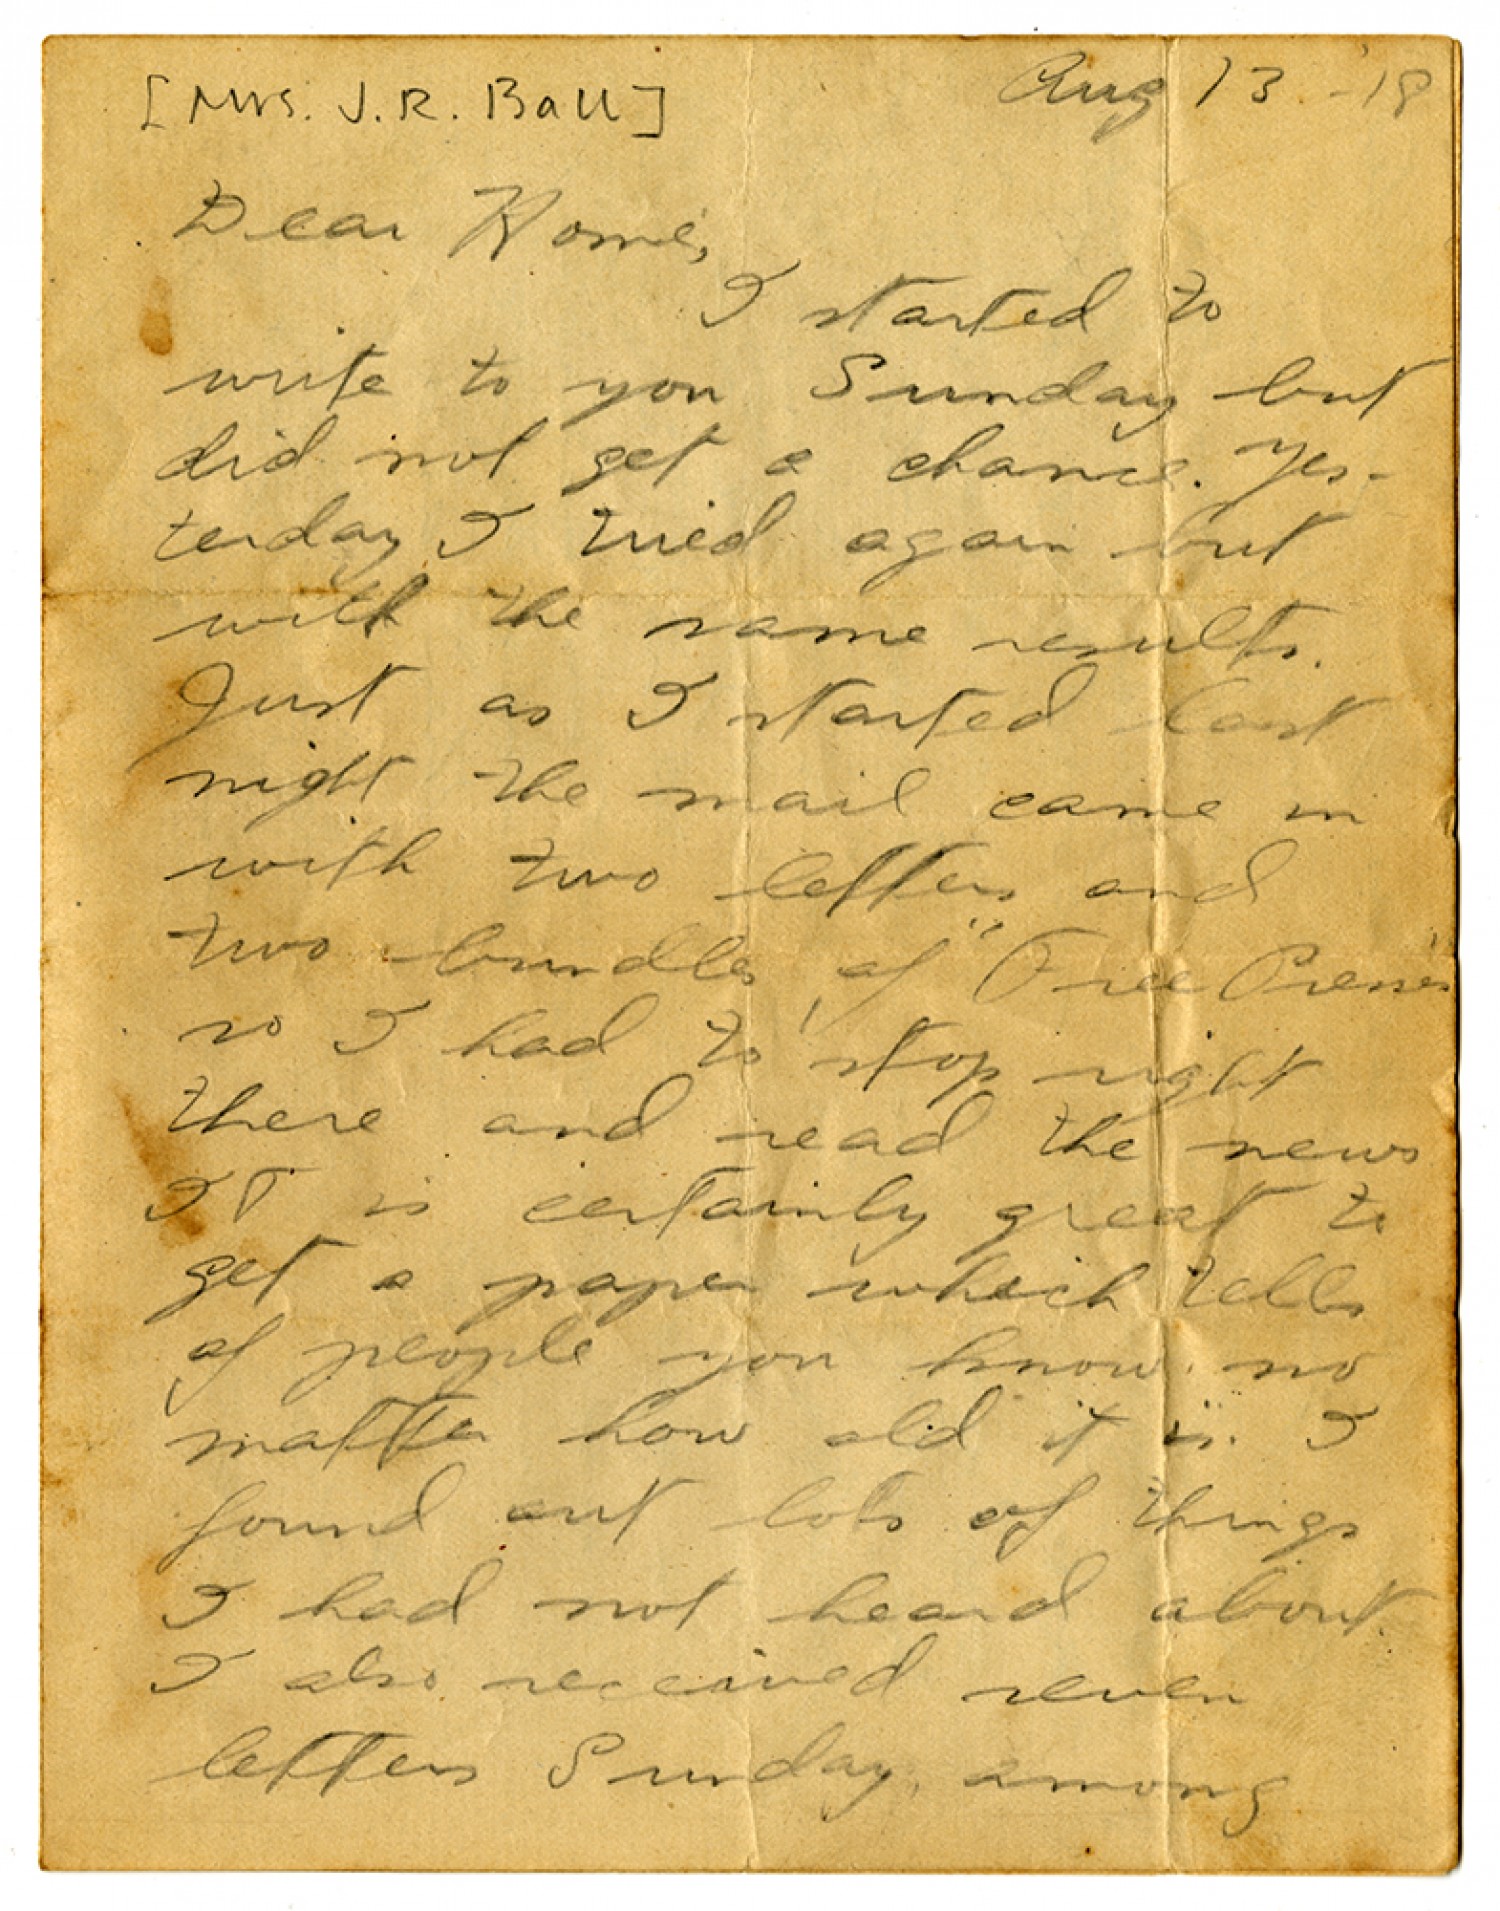 [Mrs. J. R. Ball]
Aug 13 - '18
Dear Home,
I started to
write to you Sunday but
did not get a chance. Yes-
terday I tried again but
with the same results.
Just as I started last
night the mail came in
with two letters and
two bundles of "Free Presses"
so I had to stop right
there and read the news
It is certainly great to
get a paper which tells
of people you know no
matter how old it is. I
found out lots of things
I had not heard about.
I also received seven
letters Sunday, among